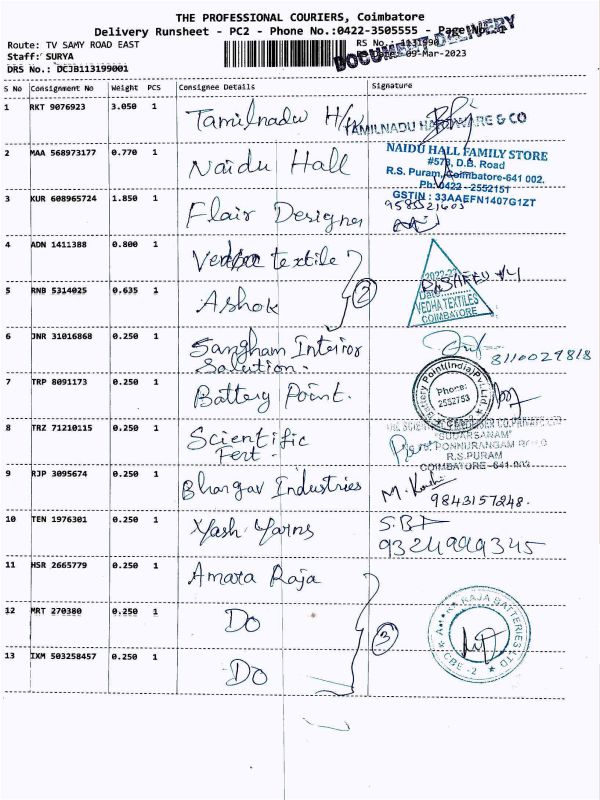 THE PROFESSIONAL COURIERS, Coimbatore
Delivery Runsheet - PC2 - Phone No.:0422-3505555 - Page No.:
DOCUMENT DELIVERY
Route: TV SAMY ROAD EAST
RS No.: 1131990
Staff: SURYA
Date: 09-Mar-2023
DRS No.: DCJB113199001
S No Consignment No Weight PCS Consignee Details Signature
1 RKT 9076923 3.050 1 Tamilnadu H/w
TAMILNADU HARDWARE & CO
2 MAA 568973177 0.770 1 Naidu Hall
NAIDU HALL FAMILY STORE
#578, D.B. Road
R.S. Puram, Coimbatore-641 002.
Ph: 0422 - 2552151
GSTIN : 33AAEFN1407G1ZT
3 KUR 608965724 1.850 1 Flair Designer
4 ADN 1411388 0.800 1 textile
2022-23
Date:
VEDHA TEXTILES
COIMBATORE
5 RNB 5314025 0.635 1 Ashok
2
6 JNR 31016868 0.250 1 Sangham Interior
Solution.
8110029818
7 TRP 8091173 0.250 1 Battery Point.
Battery Point(India)Pvt.Ltd
Phone:
2552753
8 TRZ 71210115 0.250 1 Scientific
Fert.
"SUDARSANAM"
PONNURANGAM ROAD
R.S.PURAM
COIMBATORE-641 002
9 RJP 3095674 0.250 1 Bhargav Industries
9843157248.
10 TEN 1976301 0.250 1 Yash Yarns
9324999345
11 HSR 2665779 0.250 1 Amara Raja
12 MRT 270380 0.250 1 Do
3
AMARA RAJA BATTERIES LTD
CBE - 2
13 IXM 503258457 0.250 1 Do